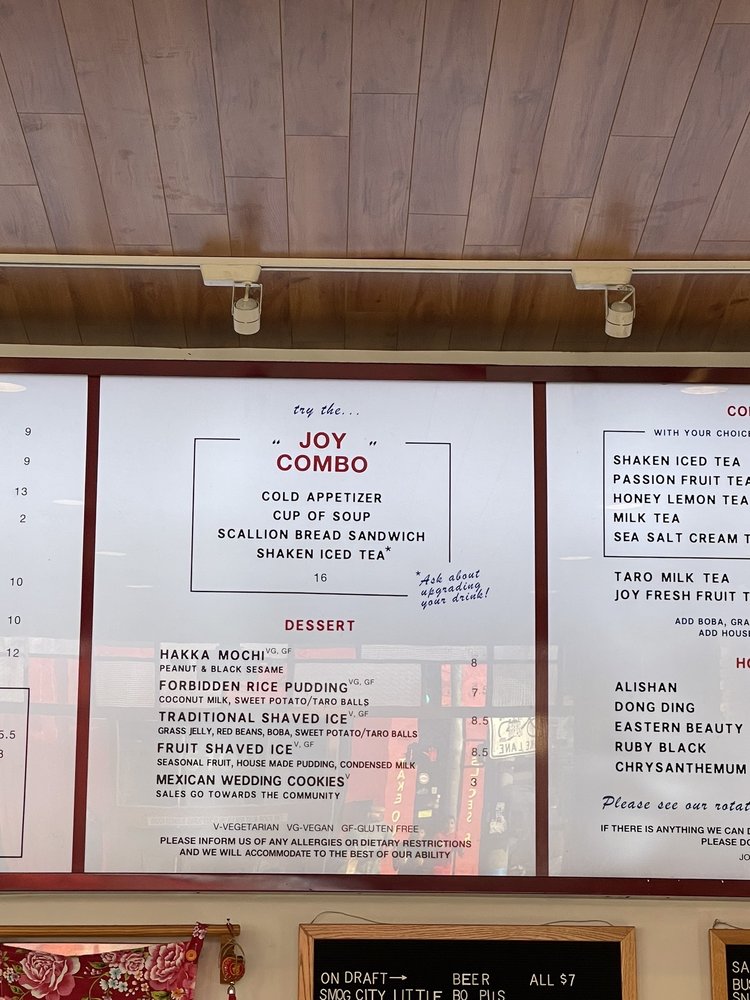 9
9
13
2
10
10
12
5.5
3
try the...
"JOY"
COMBO
COLD APPETIZER
CUP OF SOUP
SCALLION BREAD SANDWICH
SHAKEN ICED TEA*
16
*Ask about
upgrading
your drink!
DESSERT
HAKKA MOCHI VG, GF 8
PEANUT & BLACK SESAME
FORBIDDEN RICE PUDDING VG, GF 7
COCONUT MILK, SWEET POTATO/TARO BALLS
TRADITIONAL SHAVED ICE V, GF 8.5
GRASS JELLY, RED BEANS, BOBA, SWEET POTATO/TARO BALLS
FRUIT SHAVED ICE V, GF 8.5
SEASONAL FRUIT, HOUSE MADE PUDDING, CONDENSED MILK
MEXICAN WEDDING COOKIES V 3
SALES GO TOWARDS THE COMMUNITY
V-VEGETARIAN VG-VEGAN GF-GLUTEN FREE
PLEASE INFORM US OF ANY ALLERGIES OR DIETARY RESTRICTIONS
AND WE WILL ACCOMMODATE TO THE BEST OF OUR ABILITY
WITH YOUR CHOICE
SHAKEN ICED TEA
PASSION FRUIT TEA
HONEY LEMON TEA
MILK TEA
SEA SALT CREAM T
TARO MILK TEA
JOY FRESH FRUIT T
ADD BOBA, GRA
ADD HOUSE
HO
ALISHAN
DONG DING
EASTERN BEAUTY
RUBY BLACK
CHRYSANTHEMUM
Please see our rotat
IF THERE IS ANYTHING WE CAN D
PLEASE DO
JO
ON DRAFT→ BEER ALL $7
SMOG CITY LITTLE BO PILS